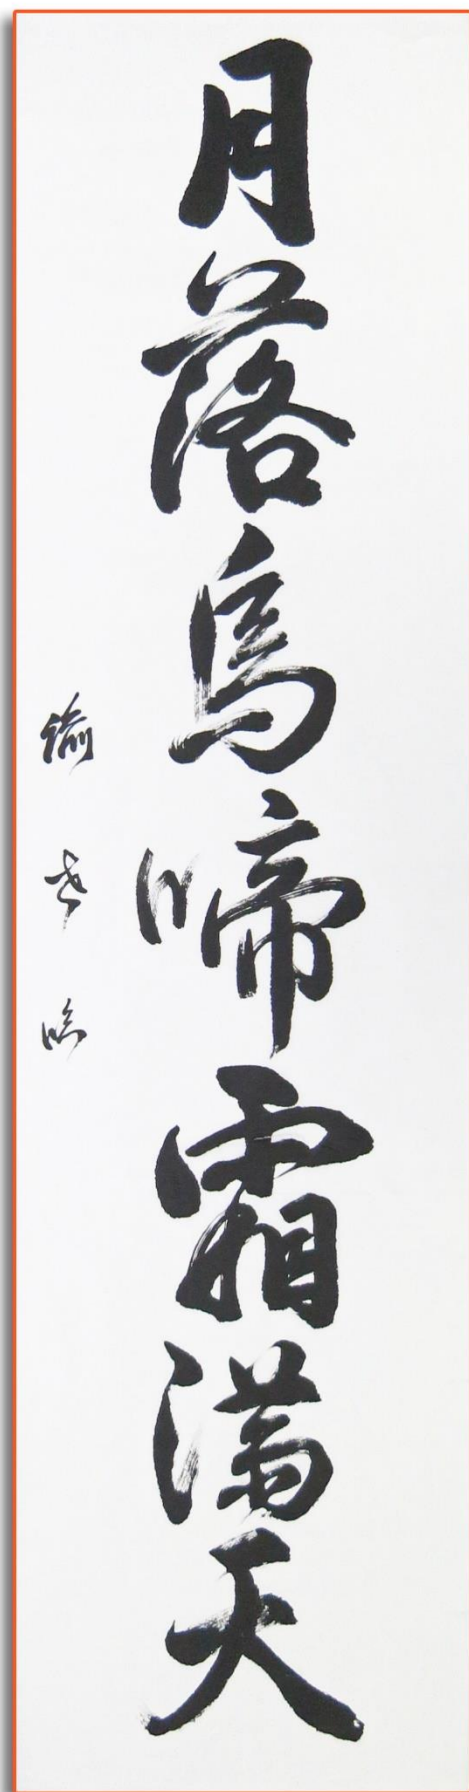 月落烏啼霜満天